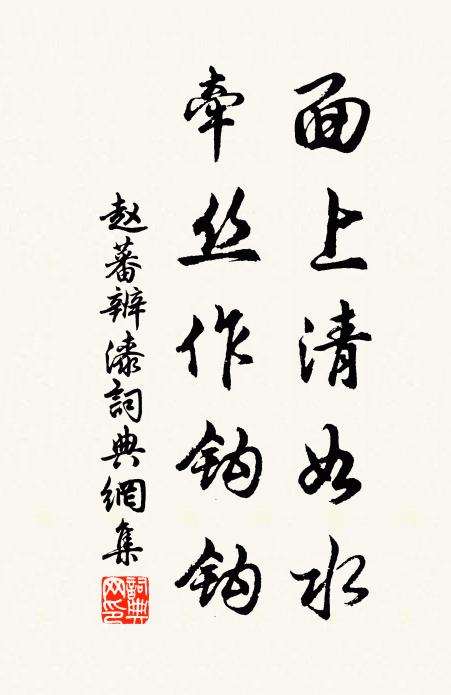 面上清如水
牵丝作钩钩
赵蕃辨漆詞典網集
詞典网印